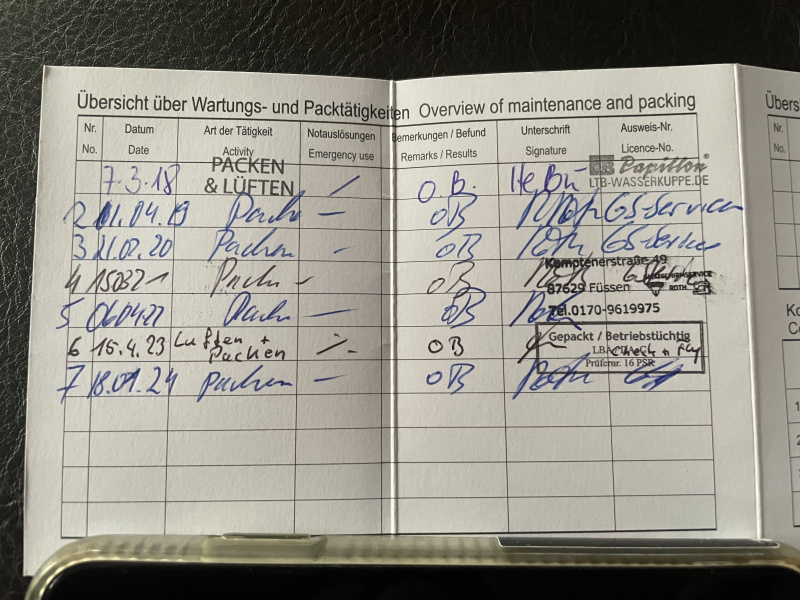 Übersicht über Wartungs- und Packtätigkeiten Overview of maintenance and packing
Nr. Datum Art der Tätigkeit Notauslösungen Bemerkungen / Befund Unterschrift Ausweis-Nr.
No. Date Activity Emergency use Remarks / Results Signature Licence-No.
7.3.18 PACKEN & LÜFTEN / O.B. Papillon® LTB-WASSERKUPPE.DE
2 01.04.19 Packen — OB GS-Service
3 21.02.20 Packen - OB GS-Service
4 150321 Packen - OB
Kemptenerstraße 49
87629 Füssen ROTH
5 060422 Packen — OB
Tel.0170-9619975
6 15.4.23 Lüften + Packen ·/. OB
Gepackt / Betriebstüchtig
Check + Fly
Prüfernr. 16 PSR
7 18.01.24 packen — OB
Übersi
Nr.
No.
Ko
Co
1
2
3